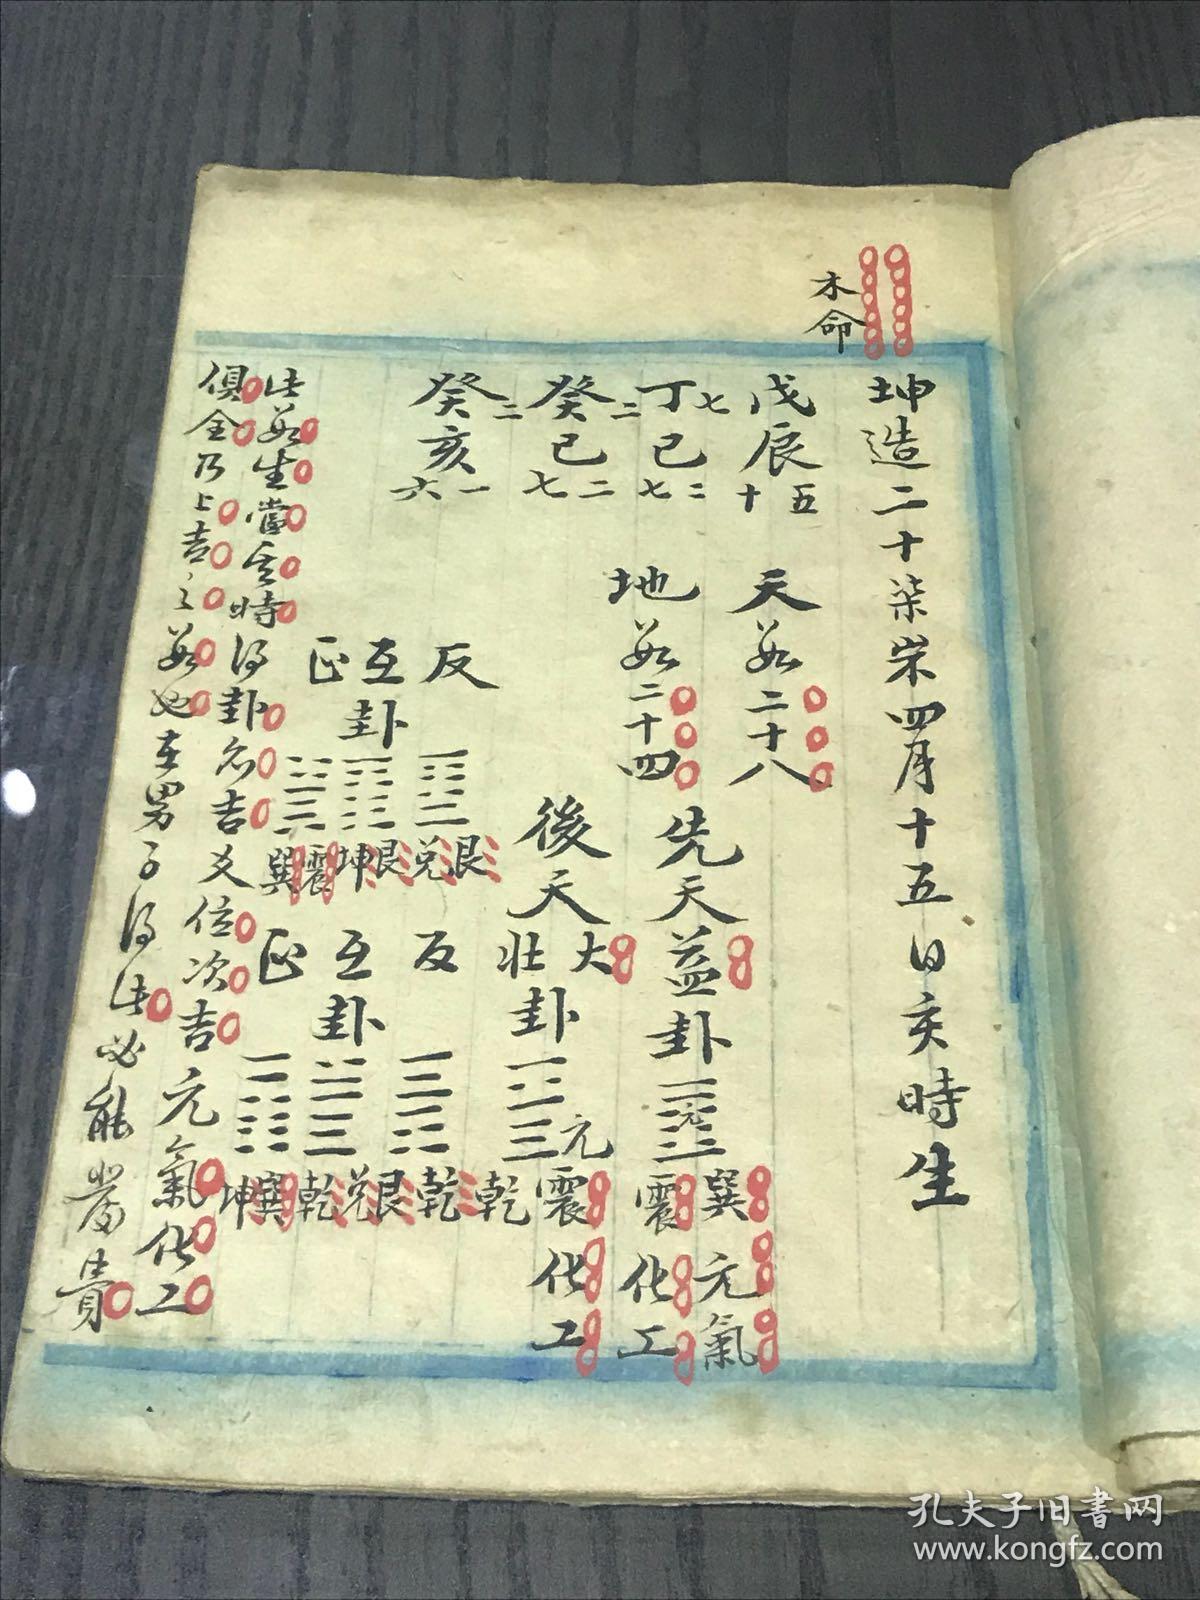 木命
坤造二十柒岁四月十五日亥時生
戊辰 八 十五
丁巳 七 七二
癸巳 二 七二
癸亥 二 六一
天数二十八
地数二十四
先天益卦 元 巽震 元氣 化工
後天大壯卦 元 震乾 化工
反 互卦 正
艮兑 艮坤 震巽
反 互卦 正
乾艮 兑乾 巽坤
此数生當亥時得卦名吉爻位次吉元氣化工
俱全乃上吉之数也在男子得此必能發貴
孔夫子旧書网
www.kongfz.com